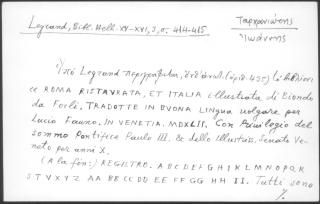 Legrand, Bibl. Hell. XV-XVI, 3, σ. 414-415
Ταρχανιώτης
Ἰωάννης
Ὑπὸ Legrand περιγράφεται, (ἀριθ. 435)
CE ROMA RISTAURATA, ET ITALIA illustrata di Biondo
da Forlì. TRADOTTE IN BUONA lingua volgare per
Lucio Fauno. IN VENETIA. MDXLII. Con Privilegio del
sommo Pontifice Paulo III. & dello Illustriss. Senato Ve-
neto per anni X.
(A la fin:) REGISTRO. A B C D E F G H I K L M N O P Q R
S T V X Y Z AA BB CC DD EE FF GG HH II. Tutti sono